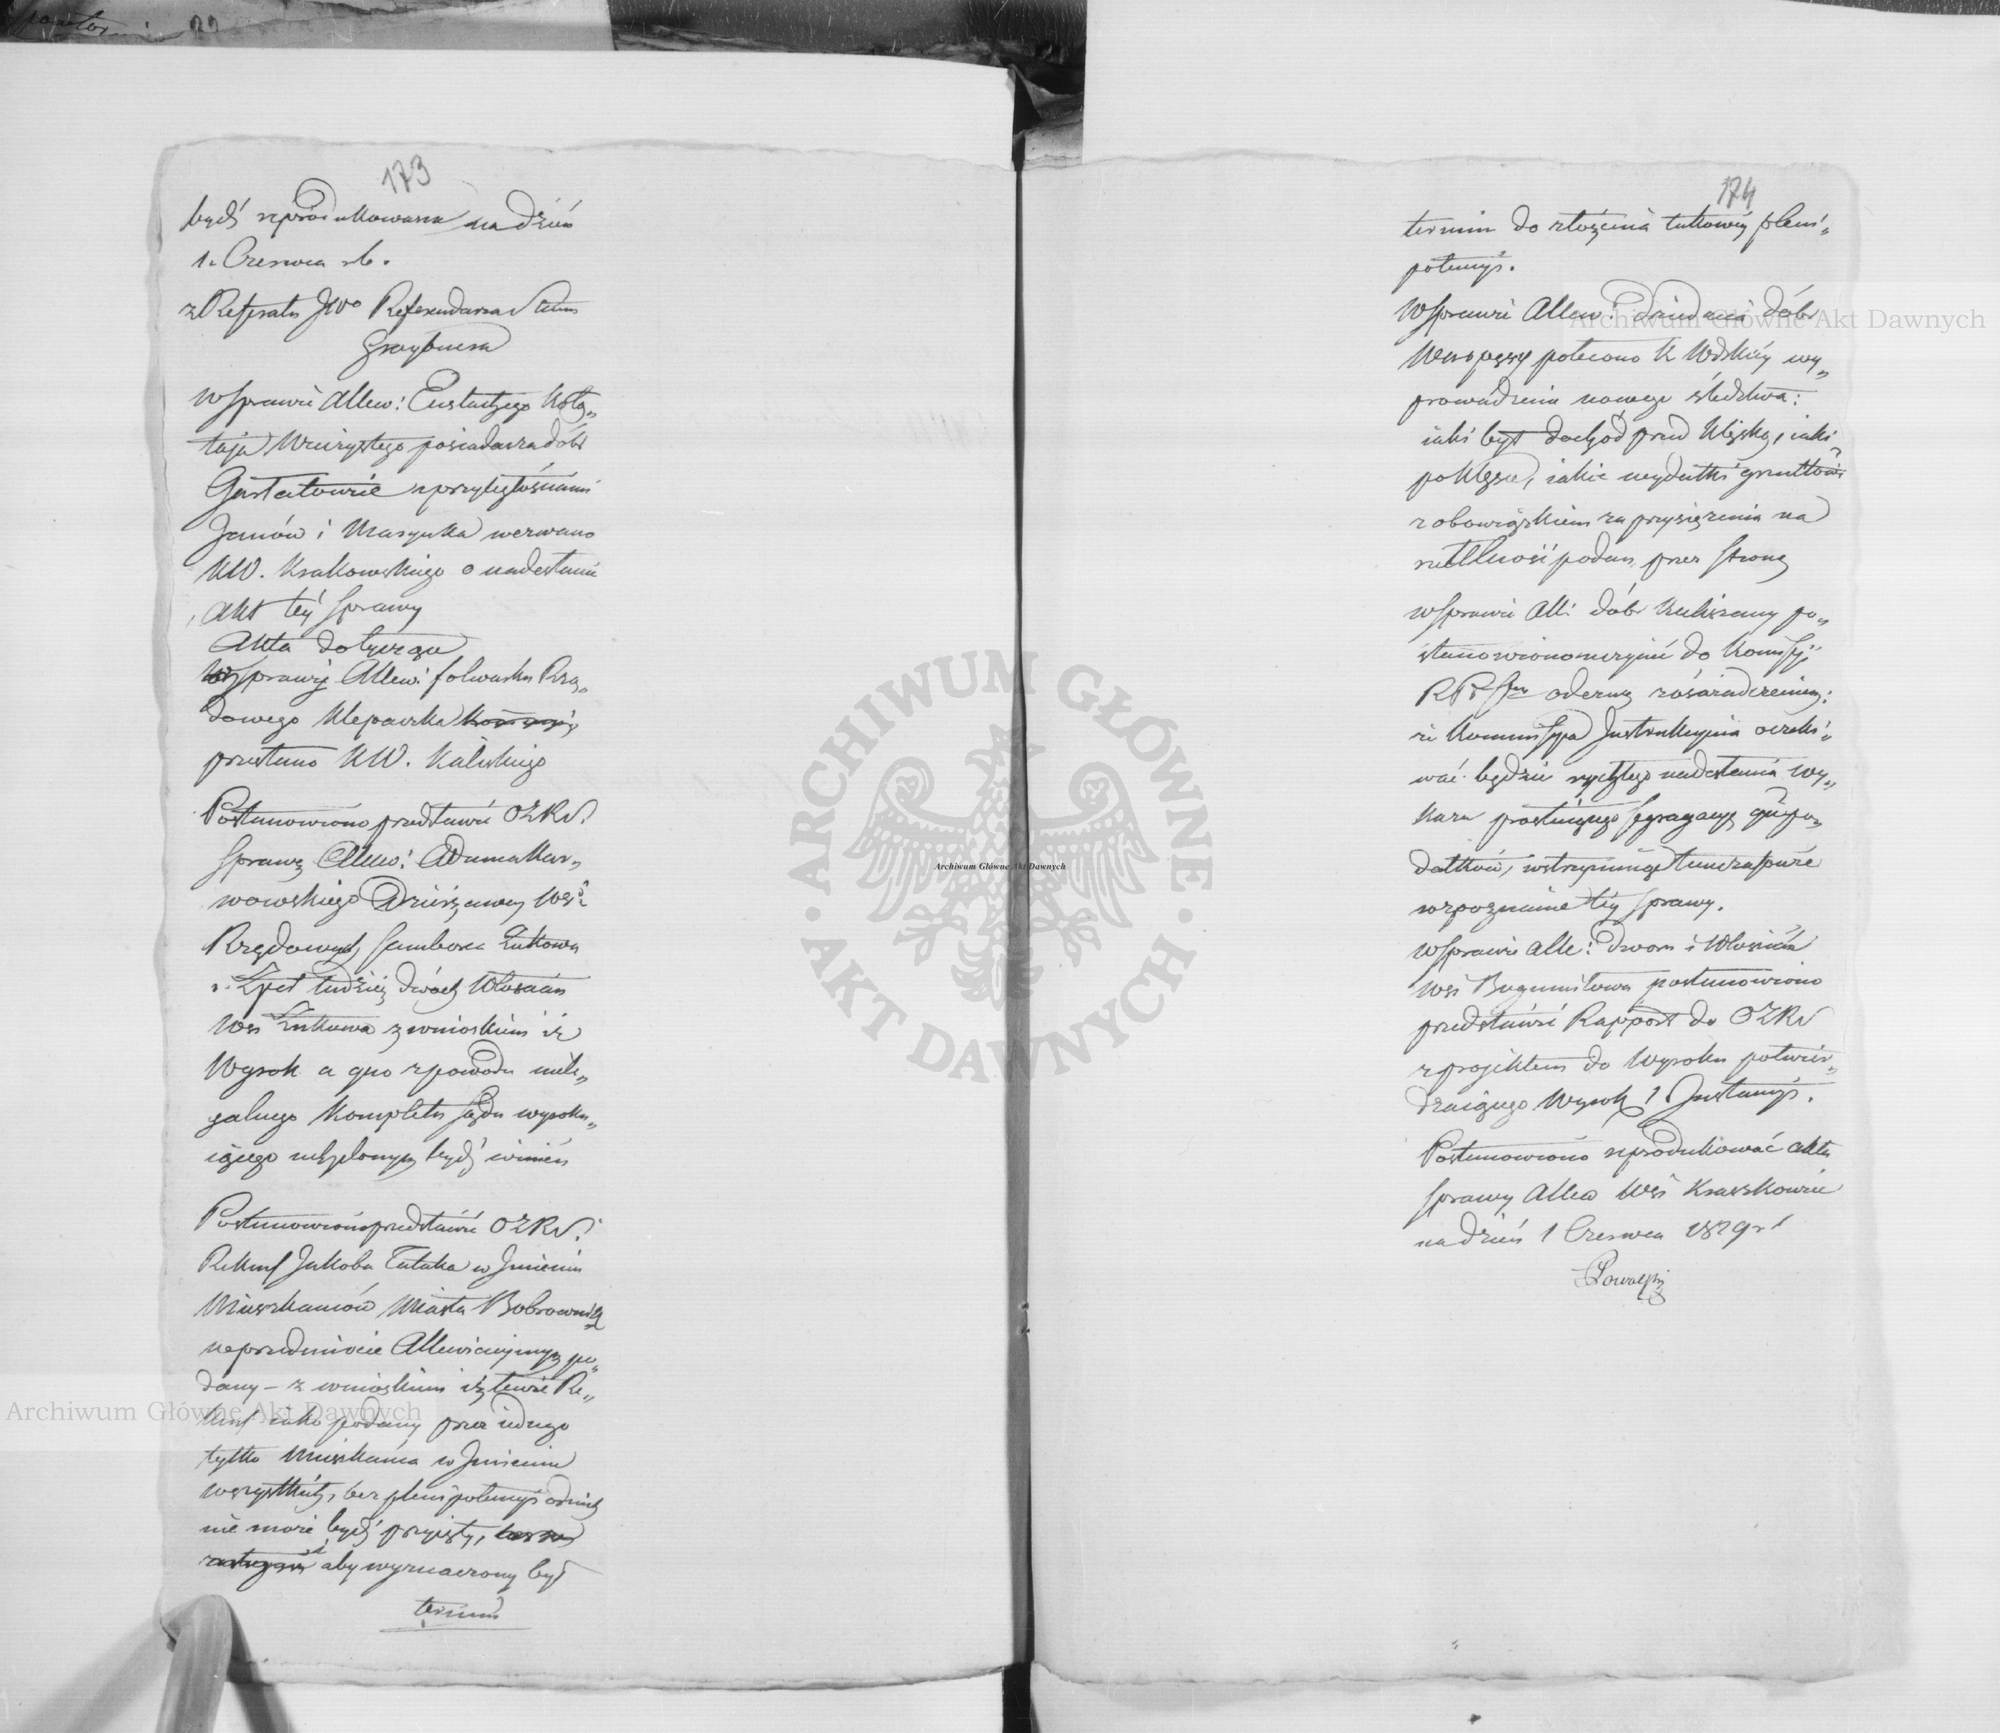 173
bydź reprodukowana na dzień
1. Czerwca rb.
z Referatu JWo Referendarza Stanu
w Sprawie Allew: Eustachego Kołą„
taja Wieczystego posiadacza dóbr
z przyległościami
Janów i wezwano
KW. Krakowskiego o nadesłanie
akt tey Sprawy
Akta dotyczące
Sprawy Allew: folwarku Rzą„
dowego Klepaczka
przesłano KW. Kaliskiego
Postanowiono przedstawić OZRS.
Sprawę Allew: Adama Kar„
wowskiego Dzierżawcy Wsi
Rządowych Łukowa
i tudzież dwóch Włościan
Wsi Łukowa z wnioskiem iż
Wyrok a quo z powodu niele„
galnego Kompletu Sądu wyroku„
iącego uchylonym bydź winien
Postanowiono przedstawić OZRS.
Rekurs Jakóba w Jmieniu
Mieszkańców Miasta Bobrownik
w przedmiocie Allewiacyjnym po„
dany – z wnioskiem iż tenże Re„
kurs jako podany przez iednego
tylko Mieszkańca w Jmieniu
wszystkich, bez plenipotencyi od nich
nie może bydź przyięty,
aby wyznaczony był
termin
174
termin do złożenia takowéy pleni„
potencyi.
W Sprawie Allew: Dziedzica dóbr
polecono K Wdzkiéy wy„
prowadzenie nowego śledztwa:
iaki był dochód przed Klęską, iaki
po Klęsce, iakie wydatki gruntowe
z obowiązkiem zaprzysiężenia na
rzetelność podań przez Stronę
w Sprawie All: dóbr Kuliszany po„
stanowiono uczynić do Komissyi
RPiSkar odezwę z oświadczeniem:
że Kommissya Jnstrukcyina oczeki„
wać będzie rychłego nadesłania Wy„
kazu prostuiącego Segregacyę po„
datków, wstrzymuiąc tymczasowie
rozpoznanie téy Sprawy.
w Sprawie Alle: Dworu i Włościan
Wsi Bogumiłowa postanowiono
przedstawić Rapport do OZRS
z projektem do Wyroku potwier„
dzaiącego Wyrok 1 Jnstancyi.
Postanowiono reprodukować akta
Sprawy Allew Wsi Kraszkowice
na dzień 1 Czerwca 1829 r
Archiwum Główne Akt Dawnych
Archiwum Główne Akt Dawnych
Archiwum Główne Akt Dawnych
ARCHIWUM GŁÓWNE
AKT DAWNYCH